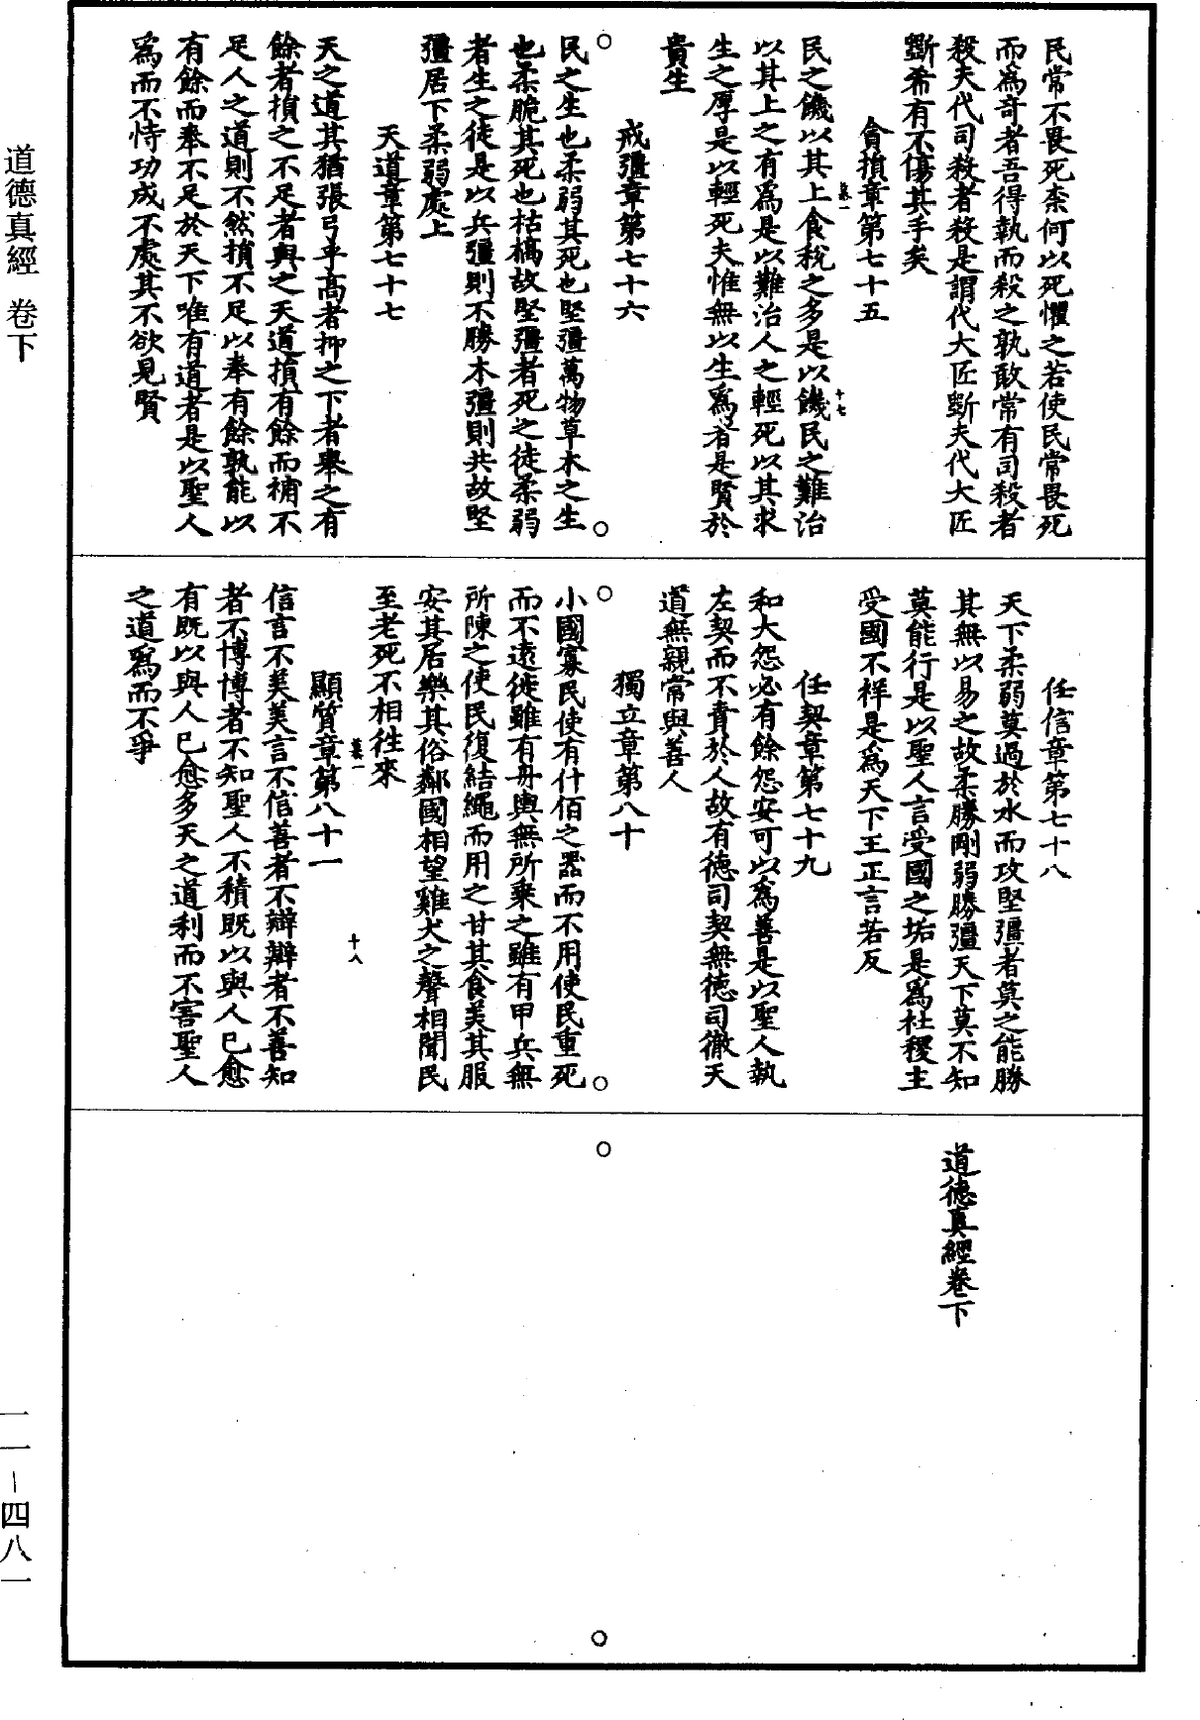 民常不畏死柰何以死懼之若使民常畏死
而爲奇者吾得執而殺之孰敢常有司殺者
殺夫代司殺者殺是謂代大匠斲夫代大匠
斲希有不傷其手矣
貪損章第七十五
民之饑以其上食稅之多是以饑民之難治
十七
以其上之有爲是以難治人之輕死以其求
生之厚是以輕死夫惟無以生爲者是賢於
貴生
戒彊章第七十六
民之生也柔弱其死也堅彊萬物草木之生
也柔脆其死也枯槁故堅彊者死之徒柔弱
者生之徒是以兵彊則不勝木彊則共故堅
彊居下柔弱處上
天道章第七十七
天之道其猶張弓乎高者抑之下者舉之有
餘者損之不足者與之天道損有餘而補不
足人之道則不然損不足以奉有餘孰能以
有餘而奉不足於天下唯有道者是以聖人
爲而不恃功成不處其不欲見賢
任信章第七十八
天下柔弱莫過於水而攻堅彊者莫之能勝
其無以易之故柔勝剛弱勝彊天下莫不知
莫能行是以聖人言受國之垢是爲社稷主
受國不祥是爲天下王正言若反
任契章第七十九
和大怨必有餘怨安可以爲善是以聖人執
左契而不責於人故有德司契無德司徹天
道無親常與善人
獨立章第八十
小國寡民使有什佰之器而不用使民重死
而不遠徙雖有舟輿無所乘之雖有甲兵無
所陳之使民復結繩而用之甘其食美其服
安其居樂其俗鄰國相望雞犬之聲相聞民
至老死不相徃來
顯質章第八十一
十八
信言不美美言不信善者不辯辯者不善知
者不博博者不知聖人不積既以與人己愈
有既以與人己愈多天之道利而不害聖人
之道爲而不爭
道德真經卷下
道德真經 卷下
一一－四八一